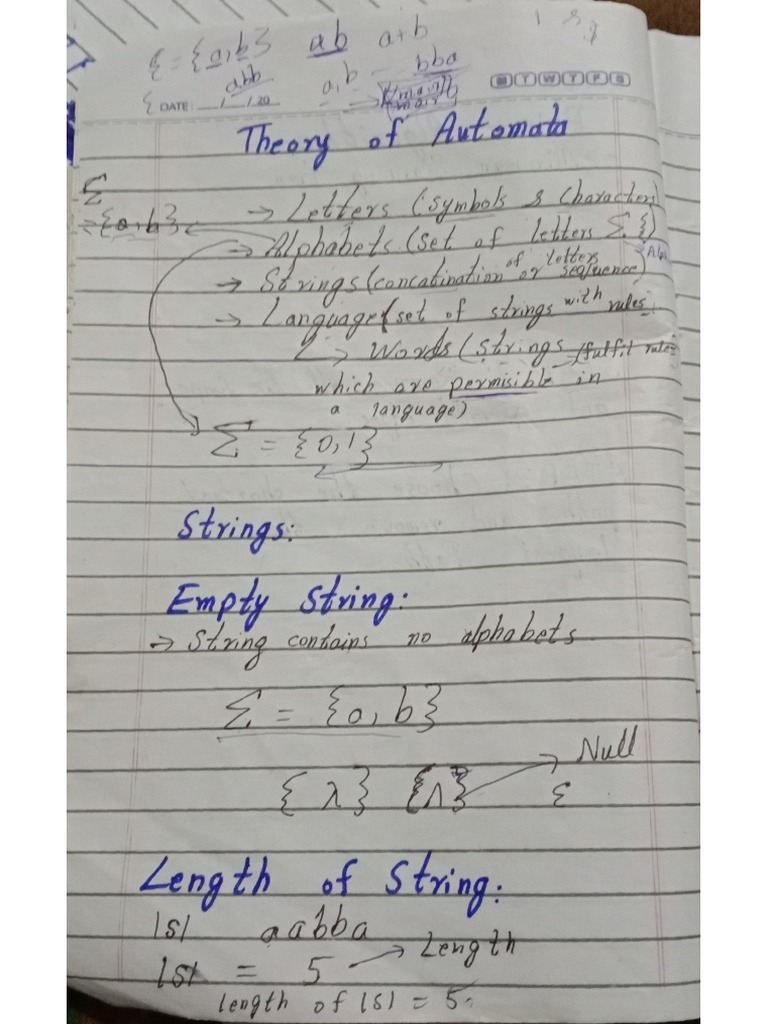 Σ = {a,b} ab a+b
abb a,b bba
DATE: __/__/20 M T W T F S
Theory of Automata
Σ
{a,b} → Letters (symbols & characters)
→ Alphabets (set of letters Σ {})
→ Strings (concatination of letters or sequence)
→ Language (set of strings with rules.
↳ Words (strings → fulfil rules
which are permisible in
a language)
Σ = {0,1}
Strings:
Empty String:
→ String contains no alphabets
Σ = {a,b}
→ Null
{ λ } {Λ} ε
Length of String:
|s| aabba
|s| = 5 → Length
length of |s| = 5.